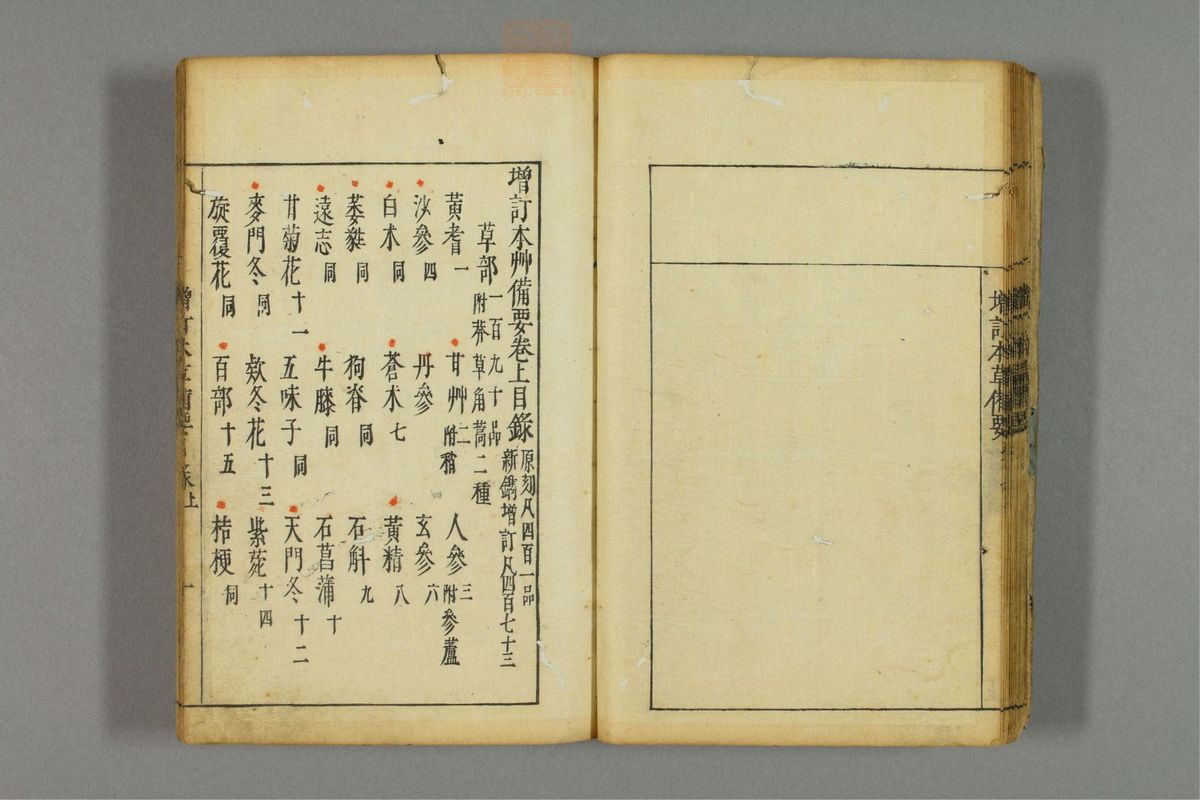 增訂本草備要
增訂本艸備要卷上目錄 原刻凡四百一品 新鐫增訂凡四百七十三
草部 一百九十品 附莽草角蒿二種
黃耆 一 甘艸 二 附稍 人參 三 附參蘆
沙參 四 丹參 玄參 六
白朮 同 蒼朮 七 黃精 八
萎蕤 同 狗脊 同 石斛 九
遠志 同 牛膝 同 石菖蒲 十
甘菊花 十一 五味子 同 天門冬 十二
麥門冬 同 欵冬花 十三 紫菀 十四
旋覆花 同 百部 十五 桔梗 同